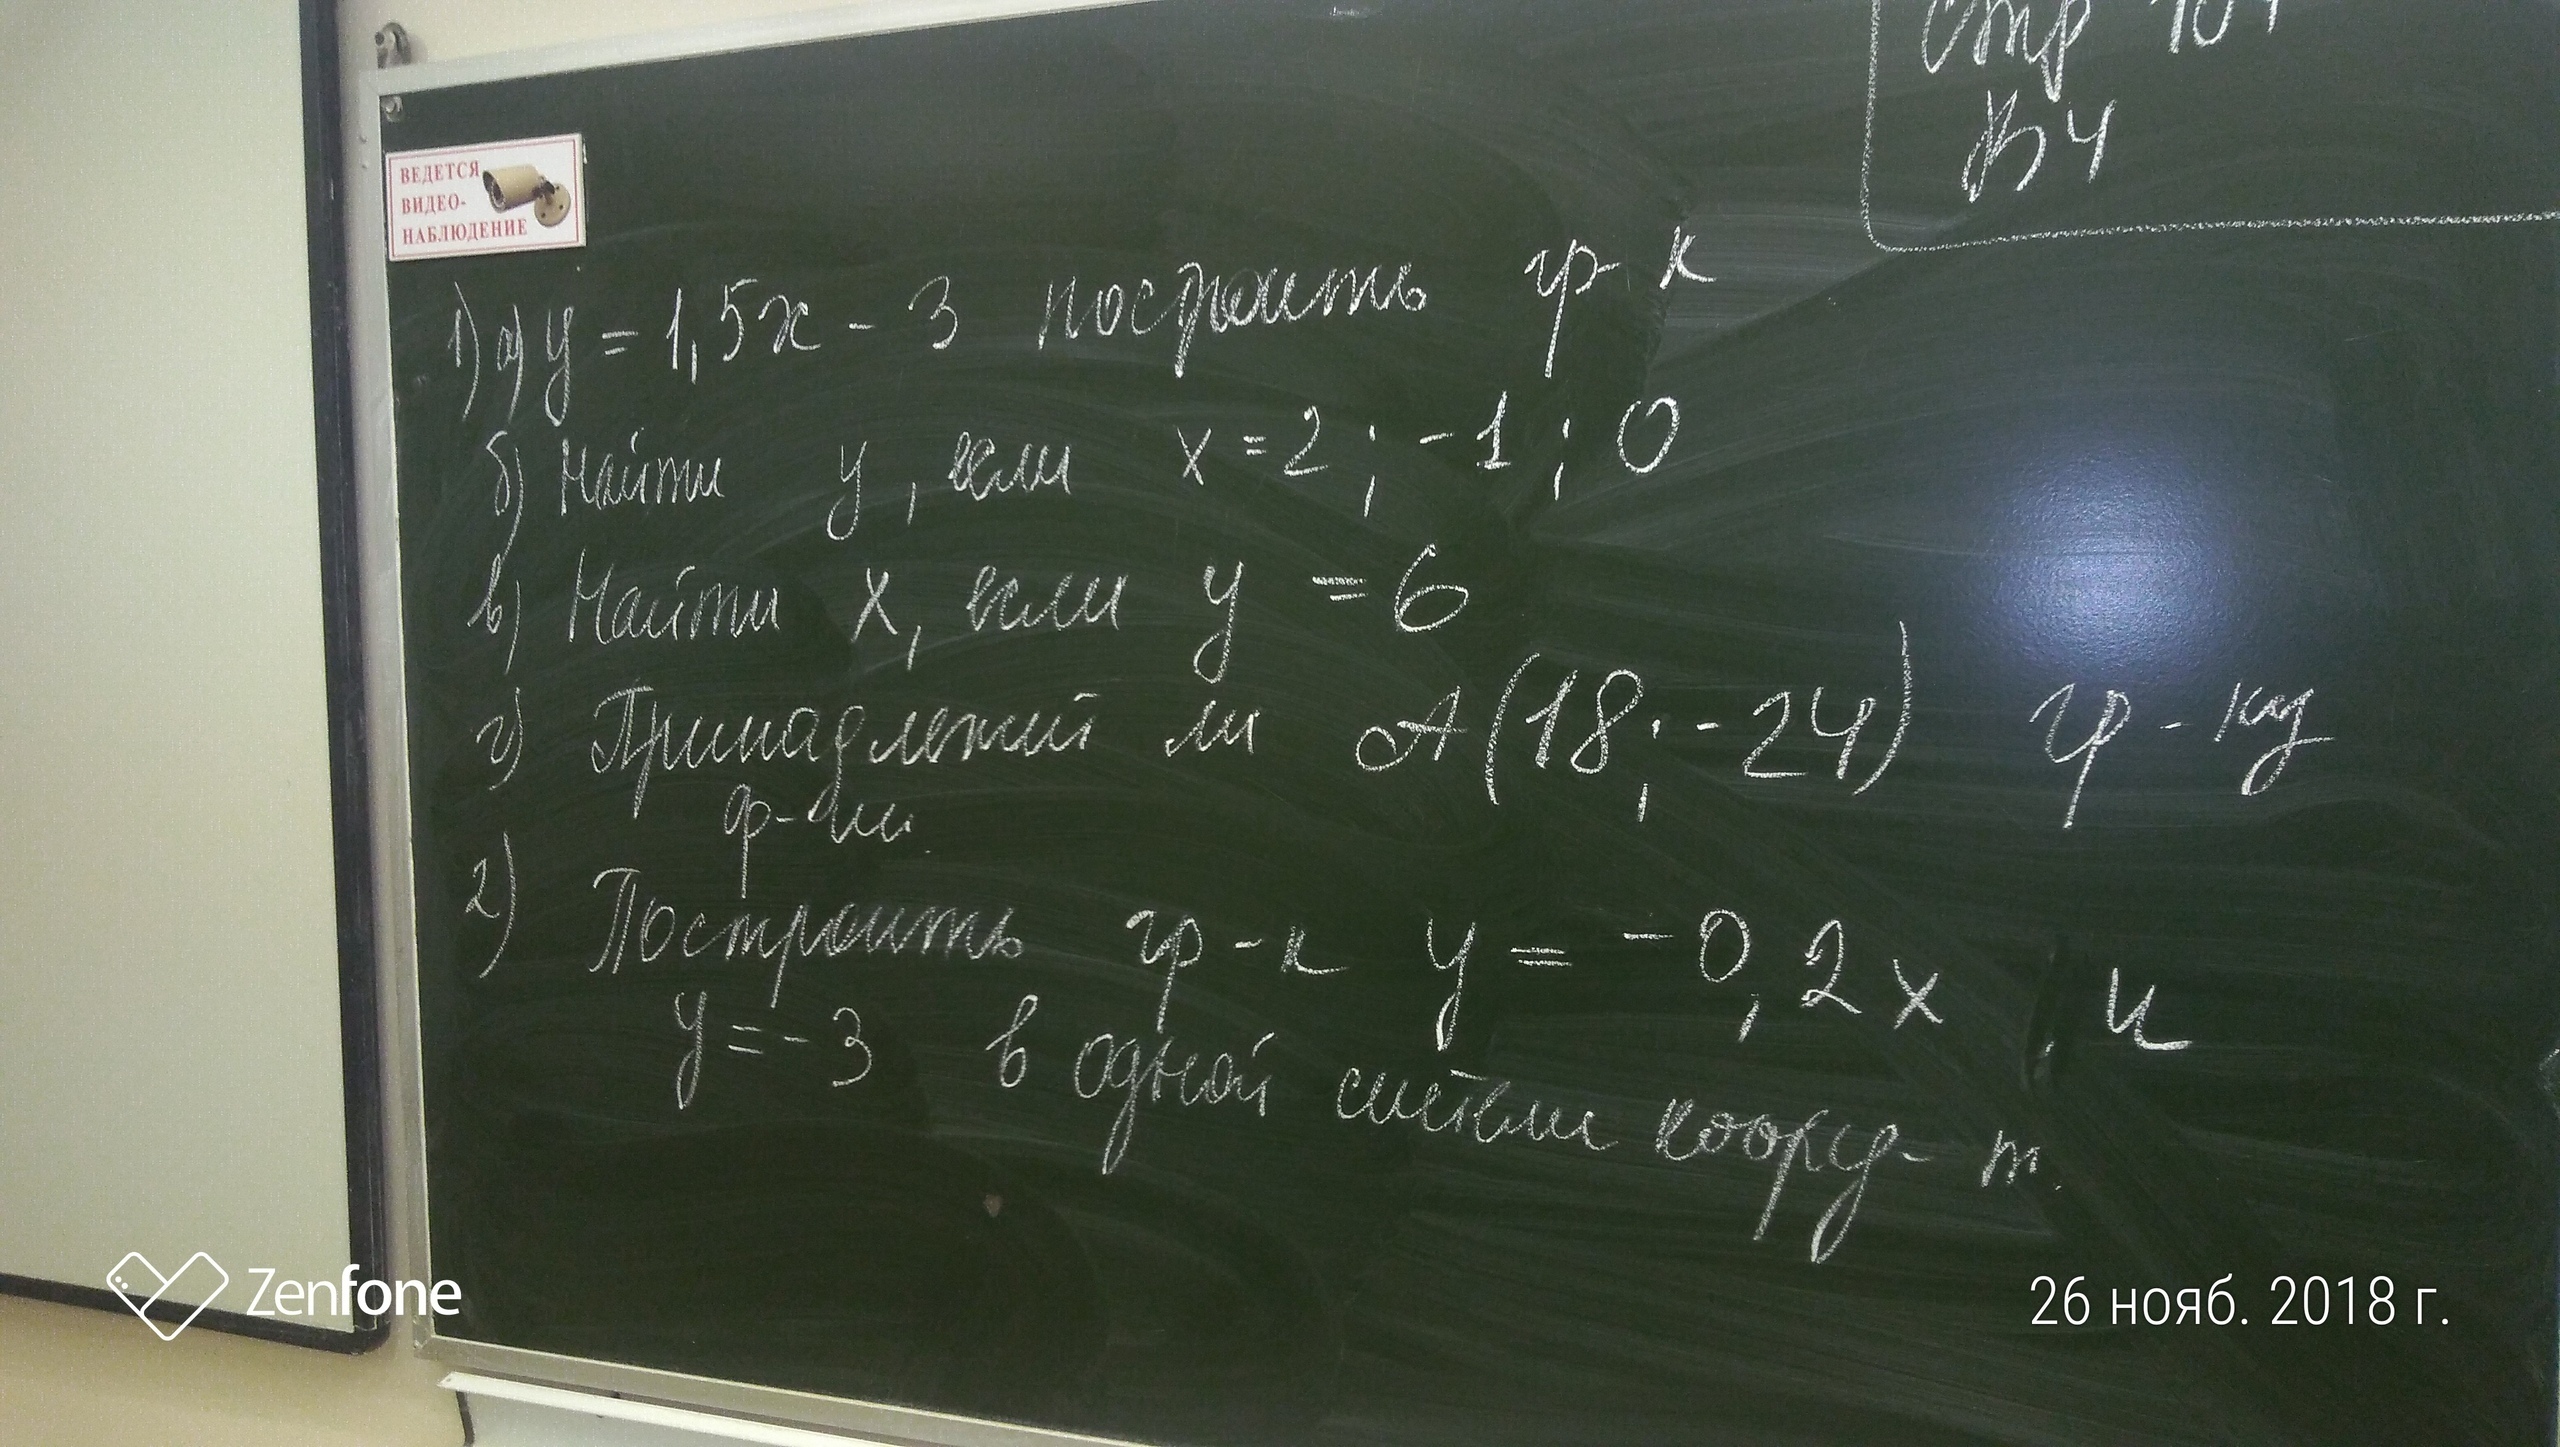 стр
В4
ВЕДЕТСЯ
ВИДЕО-
НАБЛЮДЕНИЕ
1) а) y = 1,5x - 3 построить гр-к
б) Найти y, если x = 2 ; -1 ; 0
в) Найти x, если y = 6
г) Принадлежит ли А(18; -24) гр-ку
ф-ии.
2) Построить гр-к y = -0,2x и
y = -3 в одной системе коорд-т.
Zenfone
26 нояб. 2018 г.